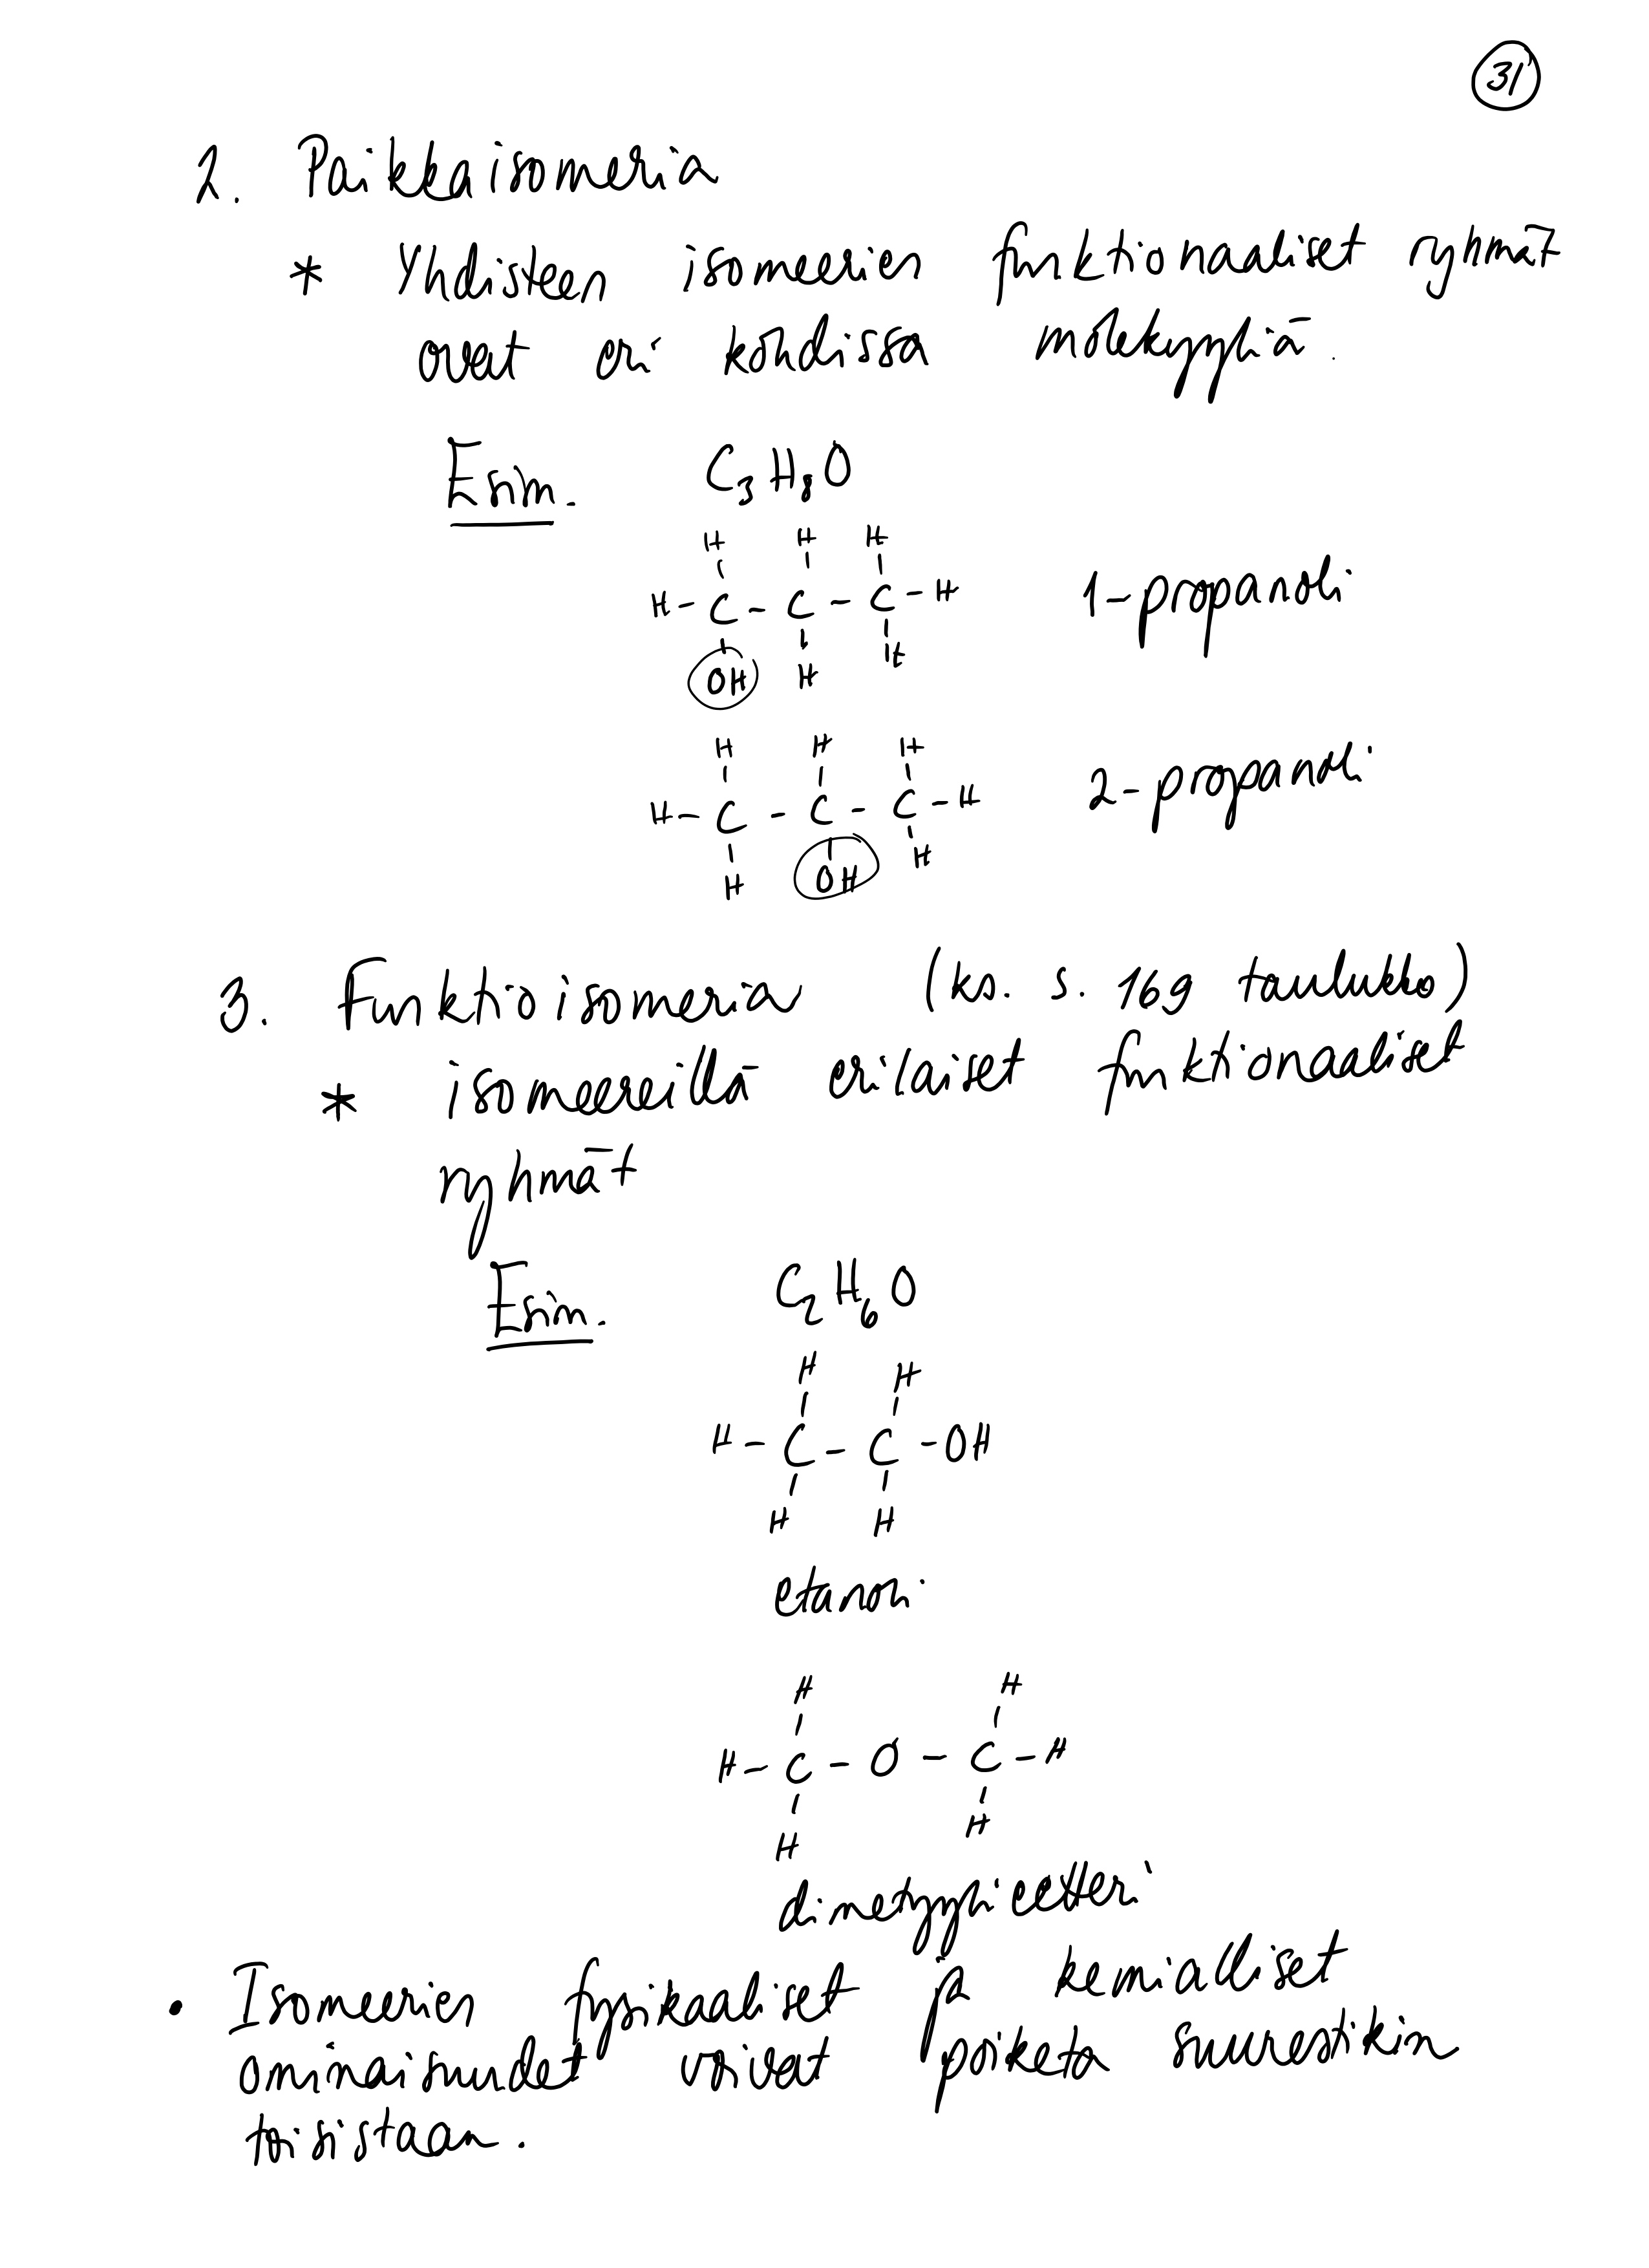 31
2. Paikkaisomeria
* Yhdisteen isomeerien funktionaaliset ryhmät
ovat eri kohdissa molekyyliä.
Esim. C₃H₈O
H H H
H - C - C - C - H 1-propanoli
OH H H
H H H
H - C - C - C - H 2-propanoli
H OH H
3. Funktioisomeria (ks. s. 169 taulukko)
* isomeereillä erilaiset funktionaaliset
ryhmät
Esim. C₂H₆O
H H
H - C - C - OH
H H
etanoli
H H
H - C - O - C - H
H H
dimetyylieetteri
• Isomeerien fysikaaliset ja kemialliset
ominaisuudet voivat poiketa suurestikin
toisistaan.